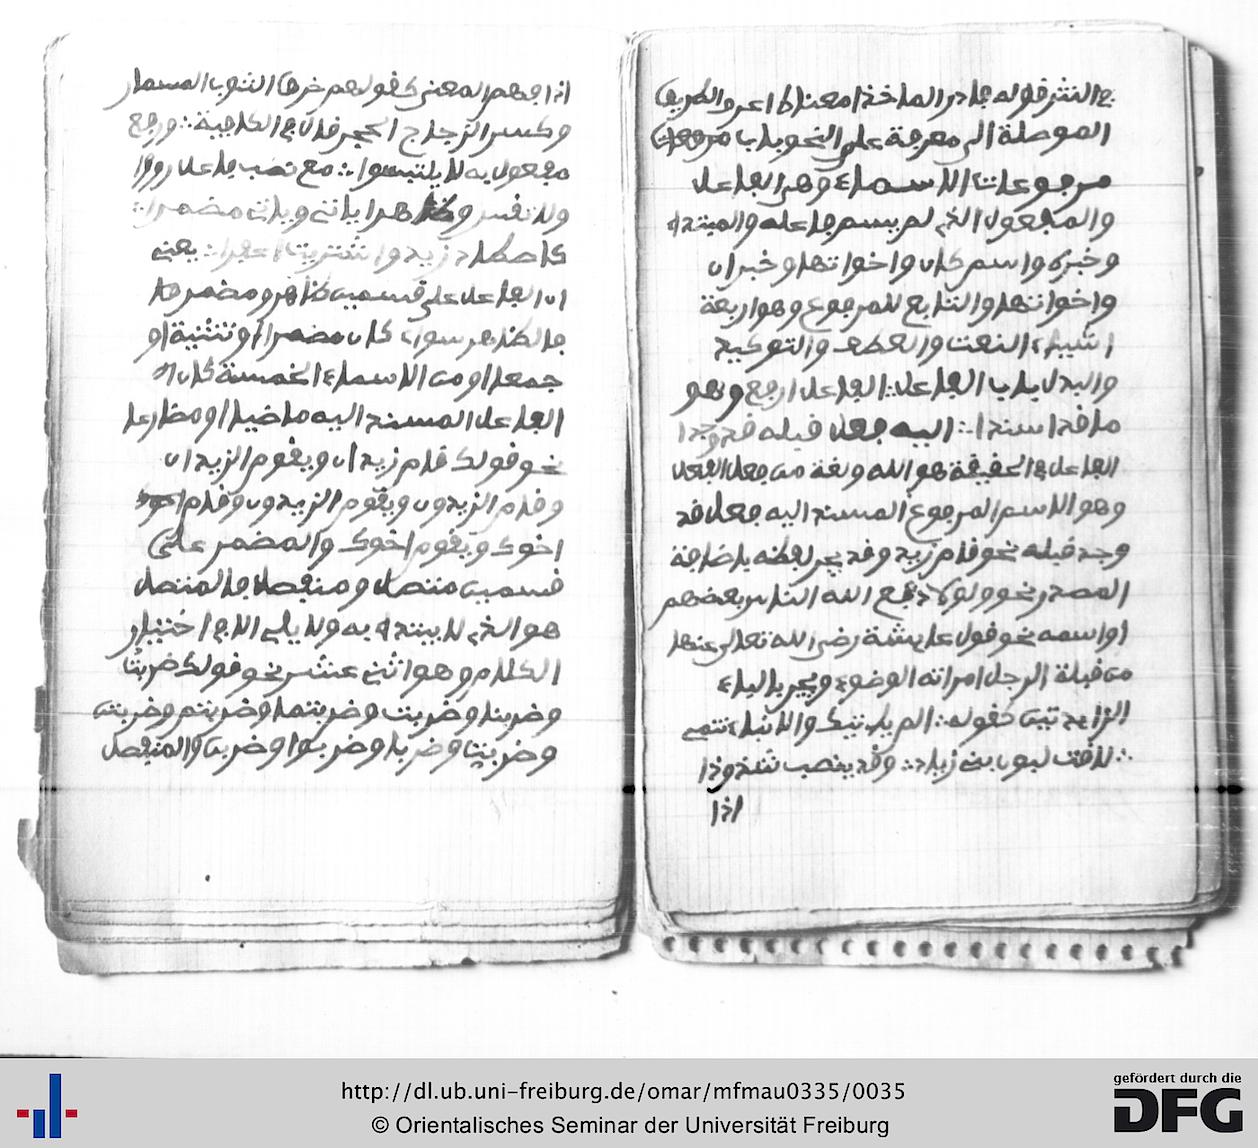 في النثر قوله جادر الماخذ امعنا كاعرو الطريق
الموصلة الى معرفة علم النحو باب مرفوعات
مرفوعات الاسماء وهي الفاعل
والمفعول الذي لم يسم فاعله والمبتدا
وخبره واسم كان واخواتها وخبر ان
واخواتها والتابع للمرفوع وهو اربعة
اشياء النعت والعطف والتوكيد
والبدل باب الفاعل: الفاعل ارفع وهو
ما قد اسندا: اليه فعل قبله قد وجدا
الفاعل في الحقيقة هو الله ولغة من فعل الفعل
وهو الاسم المرفوع المسند اليه فعل قد
وجد قبله نحو قام زيد وقد يجر لفظه باضافة
المصدر نحو ولولا دفع الله الناس بعضهم
او اسمه نحو قول عايشة رضي الله تعالى عنها
من قبلة الرجل امراته الوضوء ويجر بالباء
الزايدتين كقوله: الم ياتيك والانباء تنمي
: لاقت لبون بني زياد: وقد ينصب شذوذا
اذا
اذا فهم المعنى كقولهم خرق الثوب المسمار
وكسر الزجاج الحجر قال في الكافية: ورفع
مفعول به لا يلتبس: مع نصب فاعل رووا
ولا تقس وظاهرا ياتي وياتي مضمرا:
كاصطاد زيد واشتريت اعفرا: يعني
ان الفاعل على قسمين ظاهر ومضمر
فالظاهر سواء كان مضمرا او تثنية او
جمعا او من الاسماء الخمسة كان
الفاعل المسند اليه ماضيا او مظارعا
نحو قولك قام زيدان ويقوم الزيدان
وقام الزيدون ويقوم الزيدون وقام اخوك
اخوك ويقوم اخوك والمضمر على
قسمين متصل ومنفصل فالمتصل
هو الذي لا يبتدا به ولا يلي الا في اختيار
الكلام وهو اثنى عشر نحو قولك ضربت
وضربنا وضربت وضربتما وضربتم وضربتن
وضربت وضربا وضربوا وضربن والمنفصل
http://dl.ub.uni-freiburg.de/omar/mfmau0335/0035
© Orientalisches Seminar der Universität Freiburg
gefördert durch die
DFG